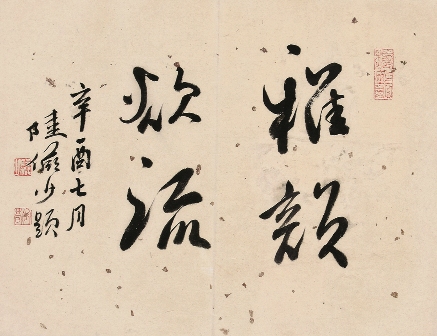 雅韻
欲流
辛酉七月
陸儼少題